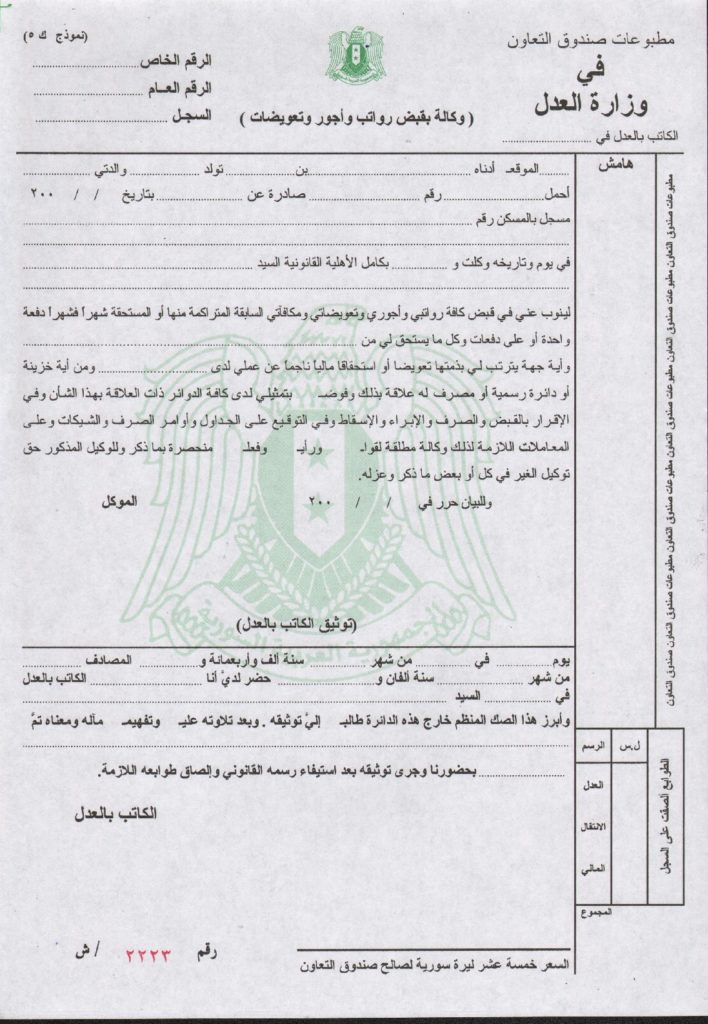 مطبوعات صندوق التعاون
في
وزارة العدل
الكاتب بالعدل في ....................
(نموذج ك ٥)
الرقم الخاص ....................
الرقم العـام ....................
السجـل ....................
( وكالة بقبض رواتب وأجور وتعويضات )
هامش
.............الموقعـ أدناه ....................بن ....................تولد ....................والدتي ....................
أحمل....................رقم ....................صادرة عن ....................بتاريخ / / ٢٠٠
مسجل بالمسكن رقم ....................
....................
في يوم وتاريخه وكلت و ....................بكامل الأهلية القانونية السيد ....................
....................
لينوب عني في قبض كافة رواتبي وأجوري وتعويضاتي ومكافأتي السابقة المتراكمة منها أو المستحقة شهراً فشهراً دفعة
واحدة أو على دفعات وكل ما يستحق لي من ....................
وأية جهة يترتب لي بذمتها تعويضا أو استحقاقا مالياً ناجماً عن عملي لدى .................... ومن أية خزينة
أو دائرة رسمية أو مصرف له علاقة بذلك وفوضـ بتمثيلي لدى كافة الدوائر ذات العلاقة بهذا الشأن وفي
الإقرار بالقبض والصرف والإبراء والإسقاط وفي التوقيع على الجداول وأوامر الصرف والشيكات وعلى
المعاملات اللازمة لذلك وكالة مطلقة لقواـ ورأيـ وفعلـ منحصرة بما ذكر وللوكيل المذكور حق
توكيل الغير في كل أو بعض ما ذكر وعزله.
وللبيان حرر في / / ٢٠٠ الموكل
الجمهورية العربية السورية
(توثيق الكاتب بالعدل)
يوم....................في ....................من شهر ....................سنة ألف وأربعمائة و....................المصادف ....................
من شهر ....................سنة ألفان و....................حضر لديَّ أنا ....................الكاتب بالعدل
في ....................السيد ....................
وأبرز هذا الصك المنظم خارج هذه الدائرة طالبـ إليَّ توثيقه . وبعد تلاوته عليـ وتفهيمـ مآله ومعناه تمَّ
....................
....................بحضورنا وجرى توثيقه بعد استيفاء رسمه القانوني وإلصاق طوابعه اللازمة.
الكاتب بالعدل
مطبوعات صندوق التعاون مطبوعات صندوق التعاون مطبوعات صندوق التعاون مطبوعات صندوق التعاون مطبوعات صندوق التعاون صندوق التعاون
الطوابع ألصقت على السجل
ل.س الرسم
العدل
الانتقال
المالي
المجموع
السعر خمسة عشر ليرة سورية لصالح صندوق التعاون
رقم ٢٢٢٣ / ش